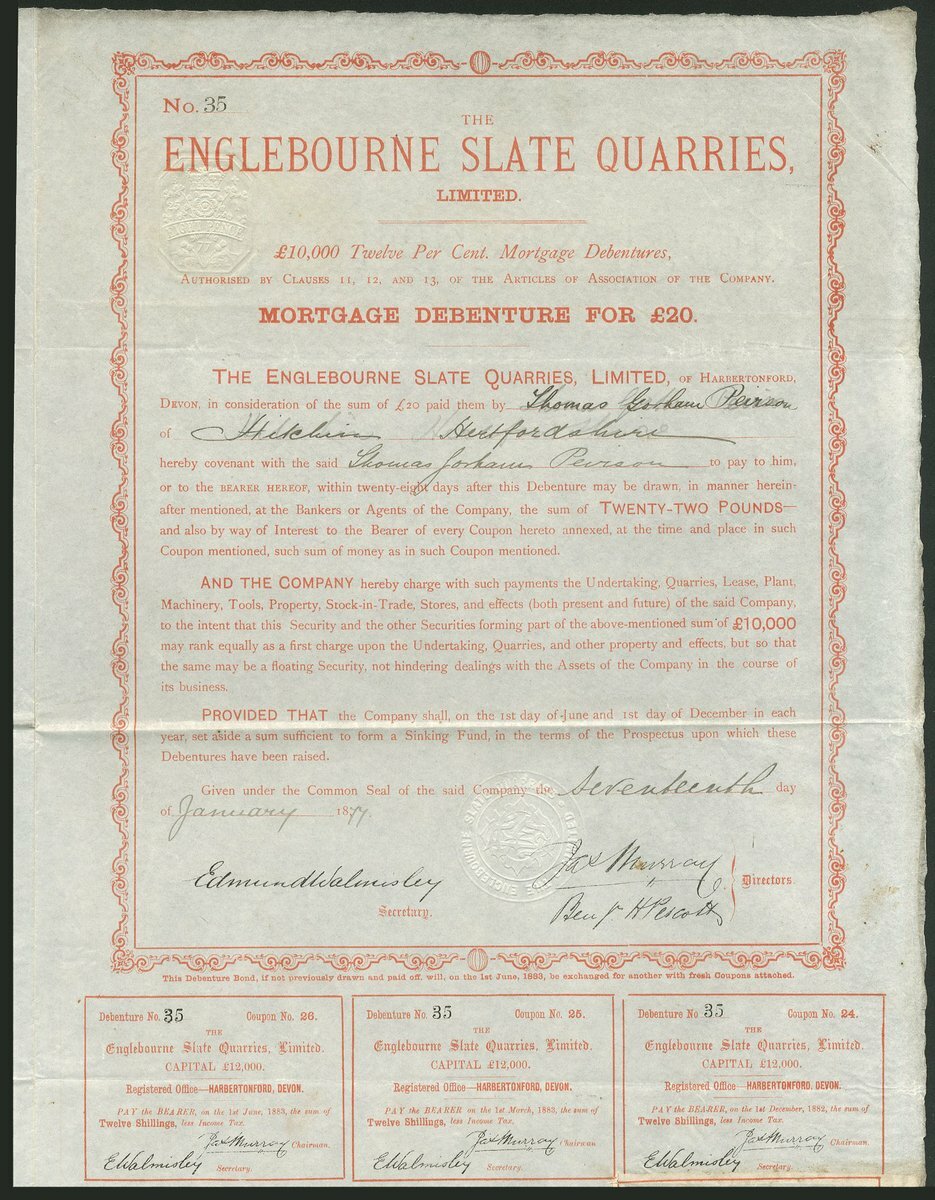 No. 35
THE
ENGLEBOURNE SLATE QUARRIES,
LIMITED.
£10,000 Twelve Per Cent. Mortgage Debentures,
AUTHORISED BY CLAUSES 11, 12, AND 13, OF THE ARTICLES OF ASSOCIATION OF THE COMPANY.
MORTGAGE DEBENTURE FOR £20.
THE ENGLEBOURNE SLATE QUARRIES, LIMITED, OF HARBERTONFORD,
DEVON, in consideration of the sum of £20 paid them by Thomas Gorham Peirson
of Hitchin Hertfordshire
hereby covenant with the said Thomas Gorham Peirson to pay to him,
or to the BEARER HEREOF, within twenty-eight days after this Debenture may be drawn, in manner herein-
after mentioned, at the Bankers or Agents of the Company, the sum of TWENTY-TWO POUNDS—
and also by way of Interest to the Bearer of every Coupon hereto annexed, at the time and place in such
Coupon mentioned, such sum of money as in such Coupon mentioned.
AND THE COMPANY hereby charge with such payments the Undertaking, Quarries, Lease, Plant,
Machinery, Tools, Property, Stock-in-Trade, Stores, and effects (both present and future) of the said Company,
to the intent that this Security and the other Securities forming part of the above-mentioned sum of £10,000
may rank equally as a first charge upon the Undertaking, Quarries, and other property and effects, but so that
the same may be a floating Security, not hindering dealings with the Assets of the Company in the course of
its business.
PROVIDED THAT the Company shall, on the 1st day of June and 1st day of December in each
year, set aside a sum sufficient to form a Sinking Fund, in the terms of the Prospectus upon which these
Debentures have been raised.
Given under the Common Seal of the said Company the Seventeenth day
of January 1877.
Edmund Walmisley
Secretary.
Jas Murray
Benj. H Pescott
Directors.
This Debenture Bond, if not previously drawn and paid off, will, on the 1st June, 1883, be exchanged for another with fresh Coupons attached.
Debenture No. 35 Coupon No. 26.
THE
Englebourne Slate Quarries, Limited.
CAPITAL £12,000.
Registered Office—HARBERTONFORD, DEVON.
PAY the BEARER, on the 1st June, 1883, the sum of
Twelve Shillings, less Income Tax.
Jas Murray Chairman.
E Walmisley Secretary.
Debenture No. 35 Coupon No. 25.
THE
Englebourne Slate Quarries, Limited.
CAPITAL £12,000.
Registered Office—HARBERTONFORD, DEVON.
PAY the BEARER on the 1st March, 1883, the sum of
Twelve Shillings, less Income Tax.
Jas Murray Chairman
E Walmisley Secretary.
Debenture No 35 Coupon No. 24.
THE
Englebourne Slate Quarries, Limited.
CAPITAL £12,000.
Registered Office—HARBERTONFORD, DEVON.
PAY the BEARER, on the 1st December, 1882, the sum of
Twelve Shillings, less Income Tax.
Jas Murray Chairman.
E Walmisley Secretary.